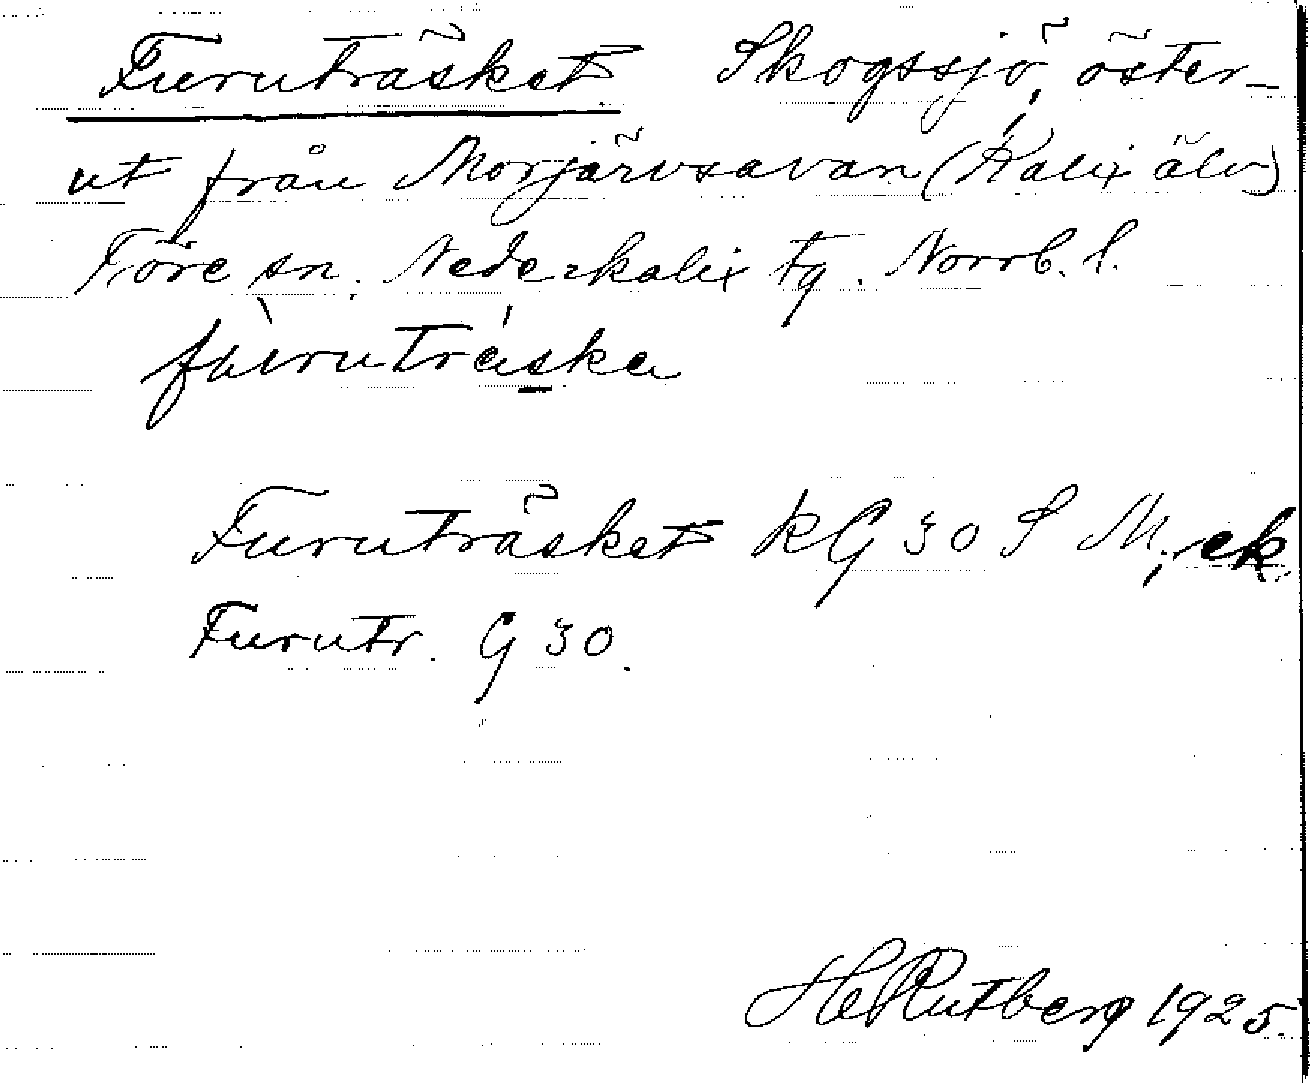 Furuträsket Skogssjö, öster-
ut från Morjärvsavan (Kalix älv)
Töre sn. Nederkalix tg. Norrb. l.
Furuträsket KG 30 S M; ek.
Furutr. G 30.
H Rutberg 1925.